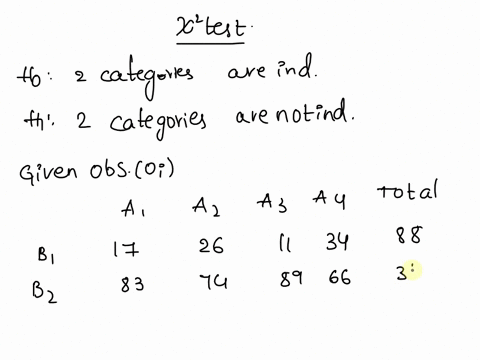 x² test.
H0: 2 categories are ind.
H1: 2 categories are not ind.
Given obs. (Oi)
A1 A2 A3 A4 Total
B1 17 26 11 34 88
B2 83 74 89 66